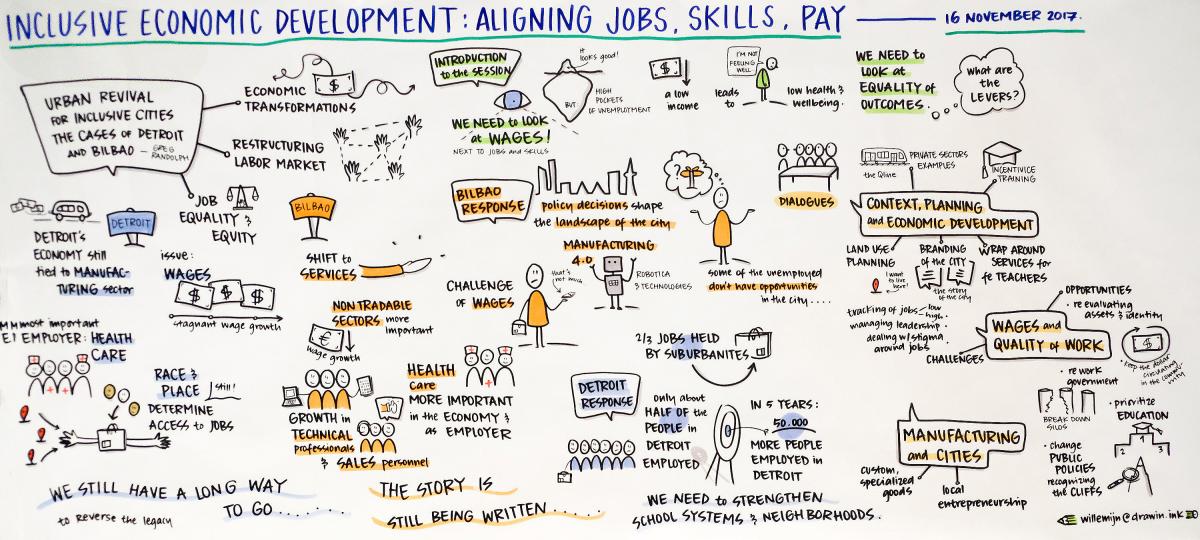 INCLUSIVE ECONOMIC DEVELOPMENT: ALIGNING JOBS, SKILLS, PAY
16 NOVEMBER 2017.
URBAN REVIVAL
FOR INCLUSIVE CITIES
THE CASES OF DETROIT
AND BILBAO – GREG
RANDOLPH
ECONOMIC
TRANSFORMATIONS
$
RESTRUCTURING
LABOR MARKET
JOB
EQUALITY &
EQUITY
DETROIT
DETROIT'S
ECONOMY still
tied to MANUFAC-
TURING sector
issue:
WAGES
$ $ $
stagnant wage growth
most important
EMPLOYER: HEALTH
CARE
RACE &
PLACE still!
DETERMINE
ACCESS to JOBS
WE STILL HAVE A LONG WAY
TO GO.......
to reverse the legacy
BILBAO
SHIFT to
SERVICES
NON TRADABLE
SECTORS more
important
€
wage growth
GROWTH in
TECHNICAL
professionals
& SALES personnel
HEALTH
care
MORE IMPORTANT
in the ECONOMY &
as EMPLOYER
THE STORY IS
STILL BEING WRITTEN.....
INTRODUCTION
to the SESSION
WE NEED to LOOK
at WAGES!
NEXT TO JOBS and SKILLS
it
looks good!
BUT
HIGH
POCKETS
OF UNEMPLOYMENT
$
a low
income
leads
to
I'M NOT
FEELING
WELL..
low health &
wellbeing.
WE NEED to
LOOK at
EQUALITY OF
OUTCOMES.
what are
the
LEVERS?
BILBAO
RESPONSE
policy decisions shape
the landscape of the city
MANUFACTURING
4.0
ROBOTICA
& TECHNOLOGIES
CHALLENGE
OF WAGES
that's
not much
some of the unemployed
don't have opportunities
in the city....
DIALOGUES
2/3 JOBS HELD
BY SUBURBANITES
DETROIT
RESPONSE
only about
HALF OF the
PEOPLE in
DETROIT
EMPLOYED
IN 5 YEARS:
50.000
MORE PEOPLE
EMPLOYED in
DETROIT
WE NEED to STRENGTHEN
SCHOOL SYSTEMS & NEIGHBORHOODS.
PRIVATE SECTORS
EXAMPLES
the Qline
INCENTIVICE
TRAINING
CONTEXT, PLANNING
and ECONOMIC DEVELOPMENT
LAND USE
PLANNING
I want to
live here!
BRANDING
OF the CITY
the story
of the city
WRAP AROUND
SERVICES for
fe TEACHERS
WAGES and
QUALITY of WORK
tracking of jobs – low
high.
managing leadership.
dealing w/stigma
around jobs
CHALLENGES
OPPORTUNITIES
• re evaluating
assets & identity
$
• keep the dollar
circulating
in the commu-
nity
• re work
government
BREAK DOWN
SILOS
• prioritize
EDUCATION
2 1 3
• change
PUBLIC
POLICIES
recognizing
the CLIFFS
MANUFACTURING
and CITIES
custom,
specialized
goods
local
entrepreneurship
willemijn@drawin.ink